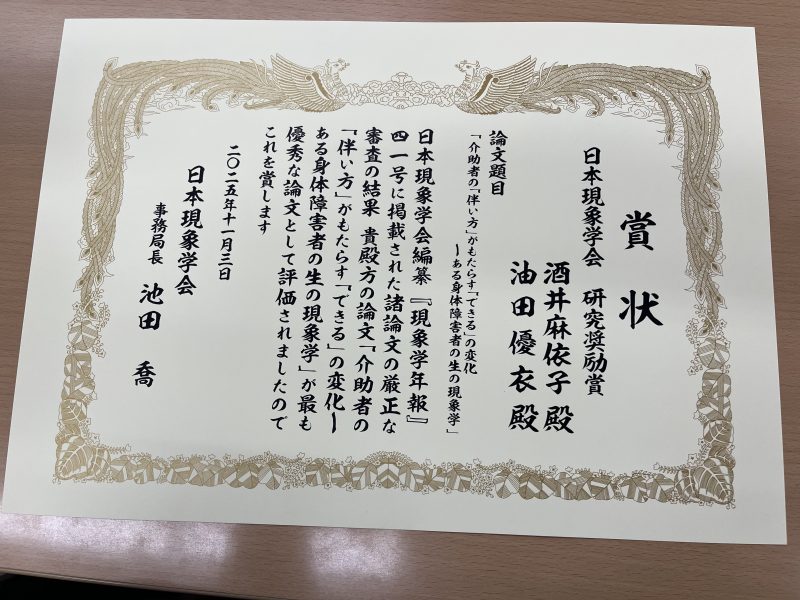 賞状
日本現象学会 研究奨励賞
酒井麻依子殿
油田優衣殿
論文題目
「介助者の「伴い方」がもたらす「できる」の変化
ーある身体障害者の生の現象学」
日本現象学会編纂『現象学年報』
四一号に掲載された諸論文の厳正な
審査の結果 貴殿方の論文「介助者の
「伴い方」がもたらす「できる」の変化ー
ある身体障害者の生の現象学」が最も
優秀な論文として評価されましたので
これを賞します
二〇二五年十一月三日
日本現象学会
事務局長 池田 喬